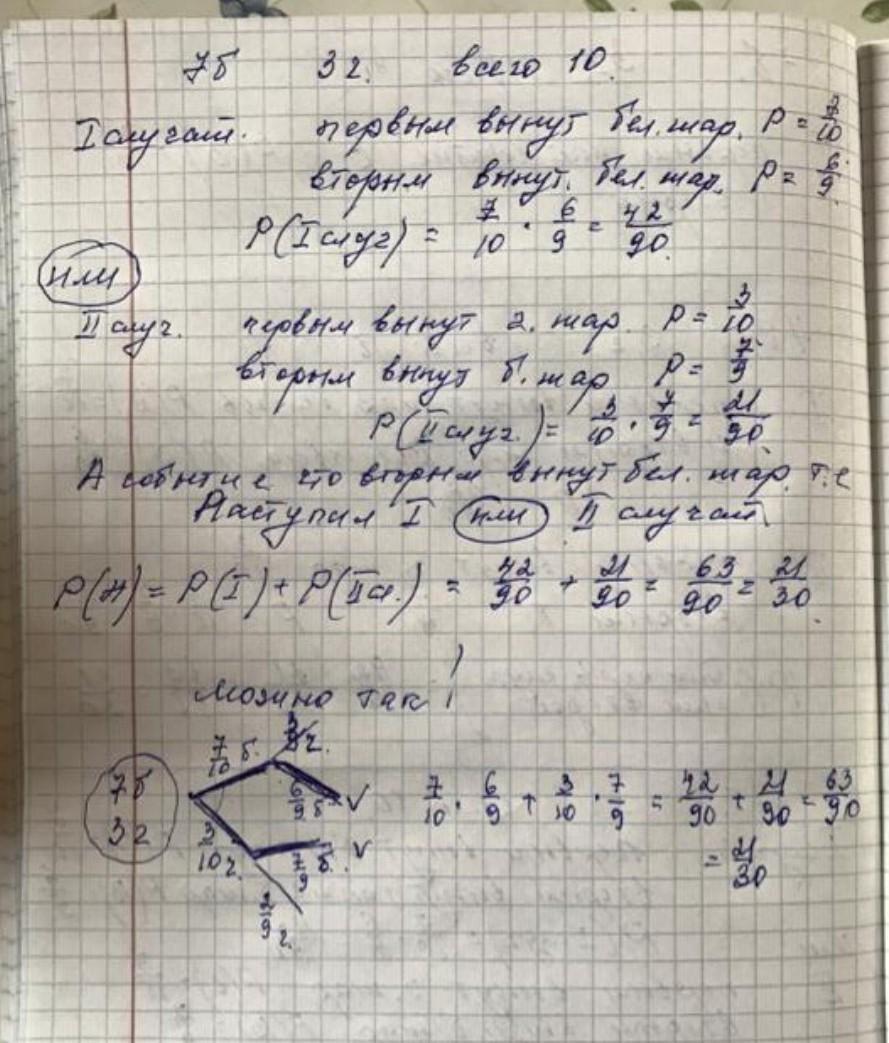 7б 3ч. всего 10.
I случай. первым вынут бел. шар. P = 7/10
вторым вынут. бел. шар. P = 6/9.
P(I случ) = 7/10 · 6/9 = 42/90.
или
II случ. первым вынут ч. шар. P = 3/10
вторым вынут б. шар P = 7/9
P(II случ.) = 3/10 · 7/9 = 21/90
А событие что вторым вынут бел. шар. т.е
Наступил I или II случай
P(А) = P(I) + P(II сл.) = 42/90 + 21/90 = 63/90 = 21/30.
Можно так!
7б
3ч
7/10 б.
3/9 ч.
6/9 б V
3/10 ч.
7/9 б. V
2/9 ч.
7/10 · 6/9 + 3/10 · 7/9 = 42/90 + 21/90 = 63/90
= 21/30